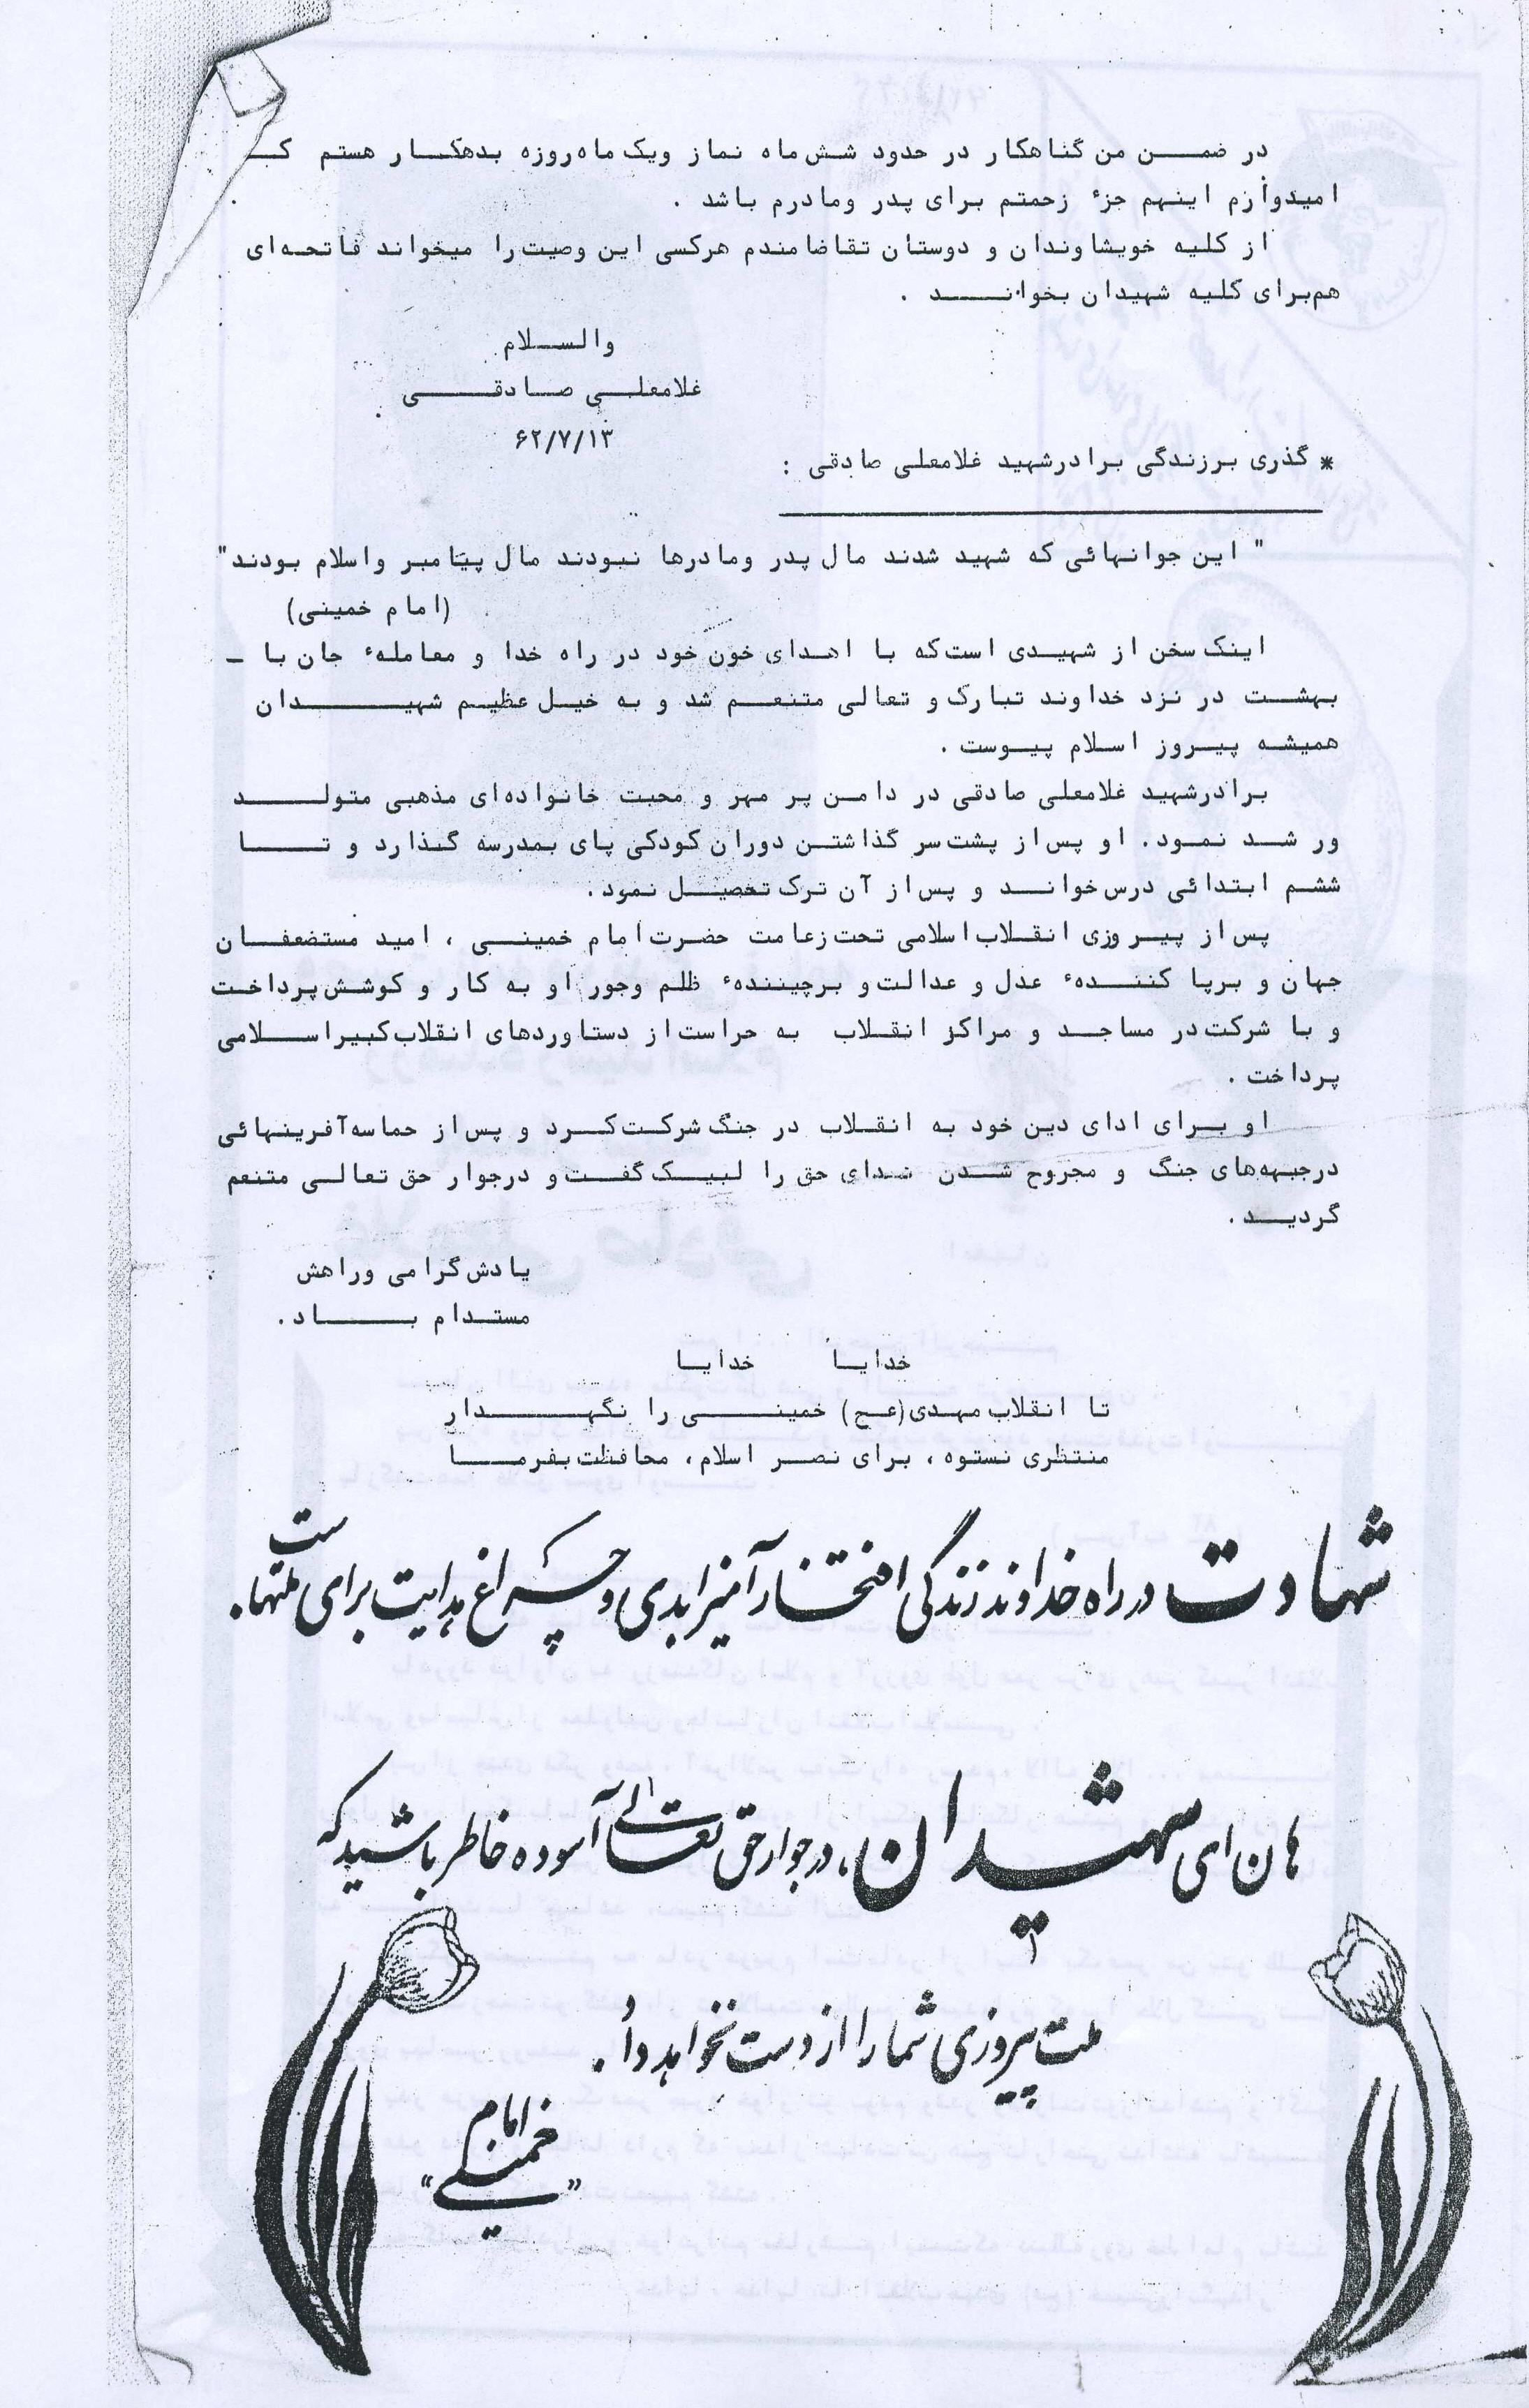 در ضمن من گناهکار در حدود شش ماه نماز ویک ماه روزه بدهکار هستم کـ
امیدوارم اینهم جزء زحمتم برای پدر ومادرم باشد .
از کلیه خویشاوندان و دوستان تقاضامندم هرکسی این وصیت را میخواند فاتحه‌ای
هم‌برای کلیه شهیدان بخوانند .
والسلام
غلامعلی صادقی
۶۲/۷/۱۳
* گذری برزندگی برادرشهید غلامعلی صادقی :
" این جوانهائی که شهید شدند مال پدر ومادرها نبودند مال پیامبر واسلام بودند"
(امام خمینی)
اینک سخن از شهیدی است‌که با اهدای خون خود در راه خدا و معاملهٔ جان با ـ
بهشت در نزد خداوند تبارک و تعالی متنعم شد و به خیل عظیم شهیدان
همیشه پیروز اسلام پیوست .
برادرشهید غلامعلی صادقی در دامن پر مهر و محبت خانواده‌ای مذهبی متولد
ور شد نمود. او پس‌از پشت سر گذاشتن دوران کودکی پای بمدرسه گذارد و تا
ششم ابتدائی درس خواند و پس‌از آن ترک تحصیل نمود.
پس از پیروزی انقلاب اسلامی تحت زعامت حضرت امام خمینی ، امید مستضعفان
جهان و برپا کنندهٔ عدل و عدالت و برچینندهٔ ظلم وجور او به کار و کوشش پرداخت
و با شرکت در مساجد و مراکز انقلاب به حراست از دستاوردهای انقلاب کبیراسلامی
پرداخت .
او برای ادای دین خود به انقلاب در جنگ شرکت کرد و پس‌از حماسه‌آفرینهائی
درجبهه‌های جنگ و مجروح شدن ندای حق را لبیک گفت و درجوار حق تعالی متنعم
گردید.
یادش گرامی وراهش
مستدام باد.
خدایا خدایا
تا انقلاب مهدی(عج) خمینی را نگهدار
منتظری نستوه ، برای نصر اسلام، محافظت بفرما
شهادت در راه خداوند زندگی افتخارآمیز ابدی و چراغ هدایت برای ملتهاست.
هان ای شهیدان، در جوار حق تعالی آسوده خاطر باشید که
ملت پیروزی شما را از دست نخواهد داد.
امام
"خمینی"